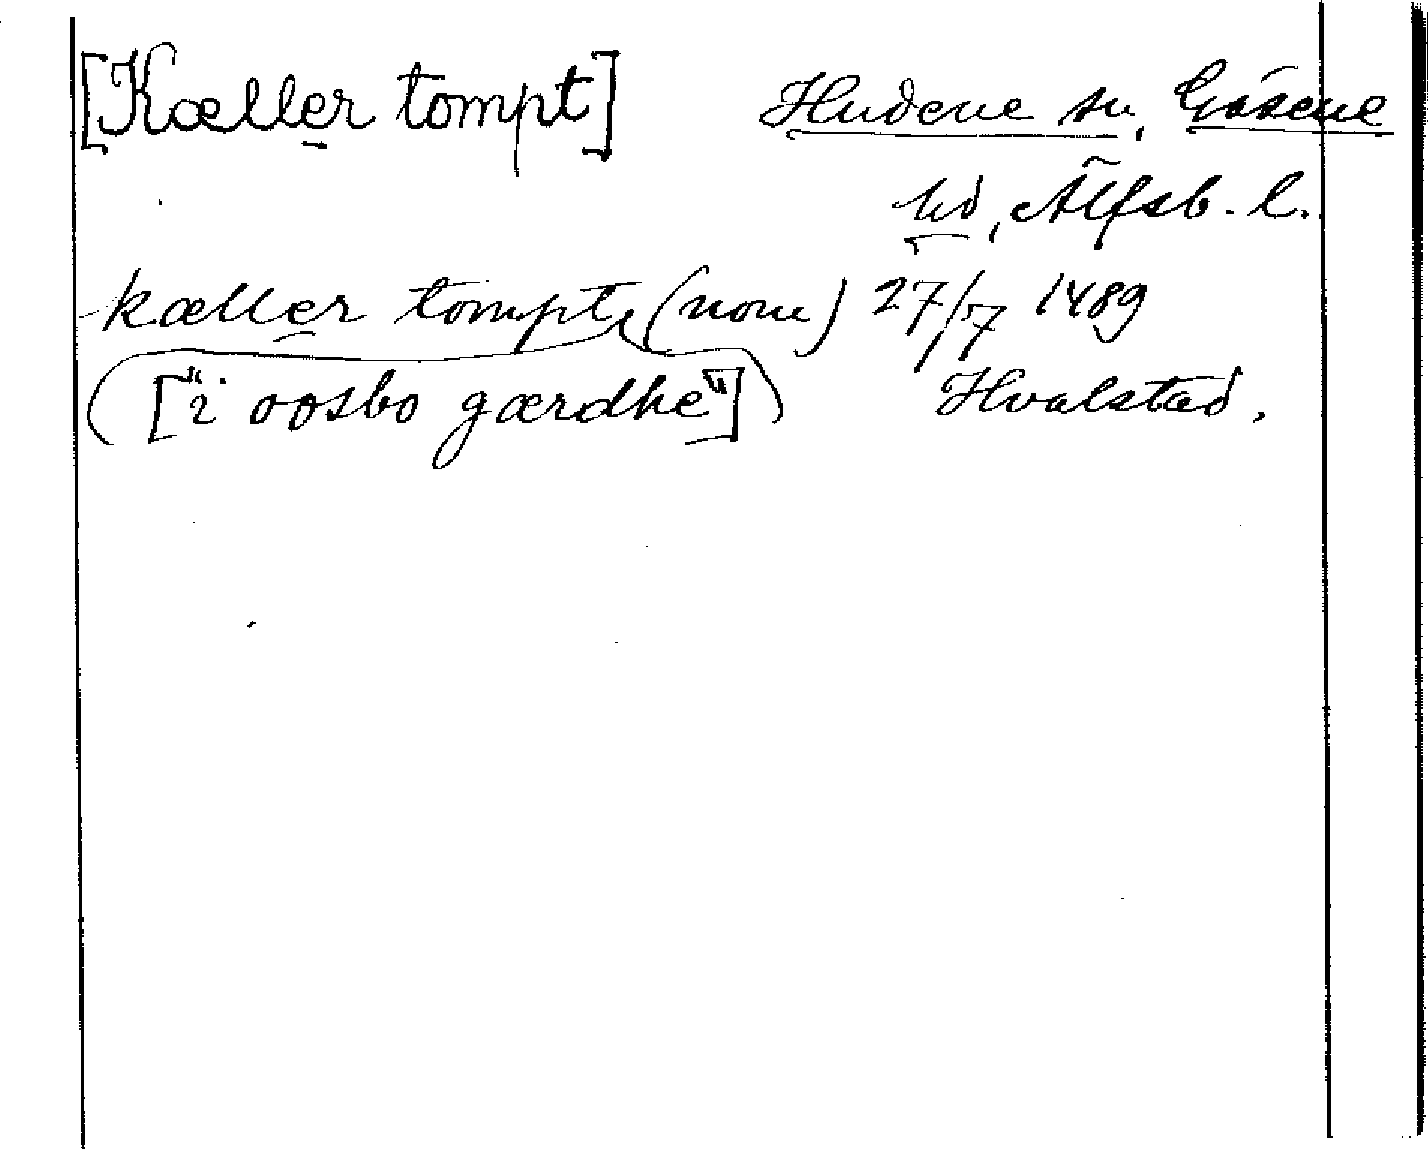 [Kæller tompt] Hudene sn, Gäsene
hd, Älfsb. l.
kæller tompt, (nom) 27/7 1489
(["i oosbo gærdhe"]) Hvalstad.